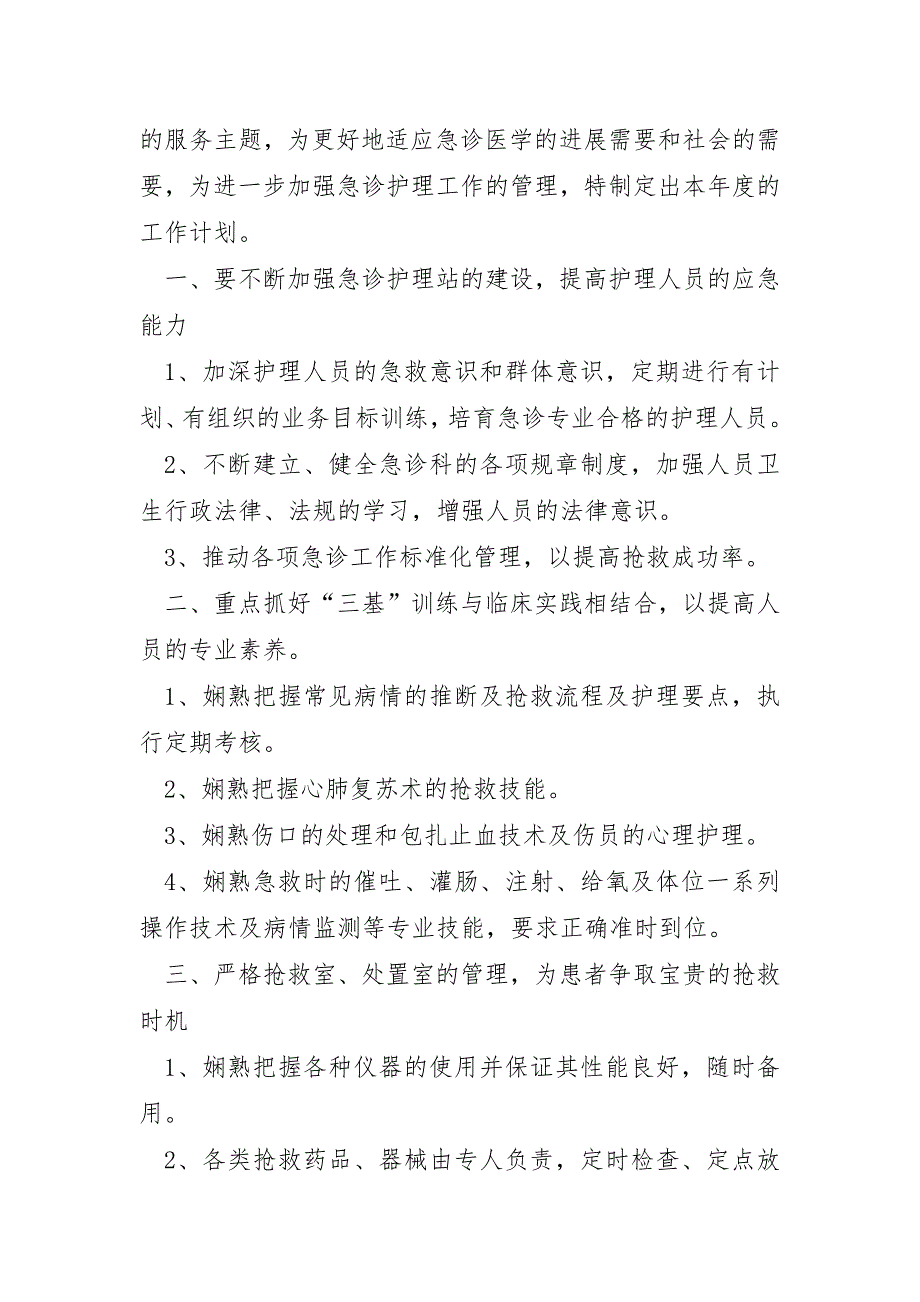 的服务主题，为更好地适应急诊医学的进展需要和社会的需
要，为进一步加强急诊护理工作的管理，特制定出本年度的
工作计划。
一、要不断加强急诊护理站的建设，提高护理人员的应急
能力
1、加深护理人员的急救意识和群体意识，定期进行有计
划、有组织的业务目标训练，培育急诊专业合格的护理人员。
2、不断建立、健全急诊科的各项规章制度，加强人员卫
生行政法律、法规的学习，增强人员的法律意识。
3、推动各项急诊工作标准化管理，以提高抢救成功率。
二、重点抓好“三基”训练与临床实践相结合，以提高人
员的专业素养。
1、娴熟把握常见病情的推断及抢救流程及护理要点，执
行定期考核。
2、娴熟把握心肺复苏术的抢救技能。
3、娴熟伤口的处理和包扎止血技术及伤员的心理护理。
4、娴熟急救时的催吐、灌肠、注射、给氧及体位一系列
操作技术及病情监测等专业技能，要求正确准时到位。
三、严格抢救室、处置室的管理，为患者争取宝贵的抢救
时机
1、娴熟把握各种仪器的使用并保证其性能良好，随时备
用。
2、各类抢救药品、器械由专人负责，定时检查、定点放